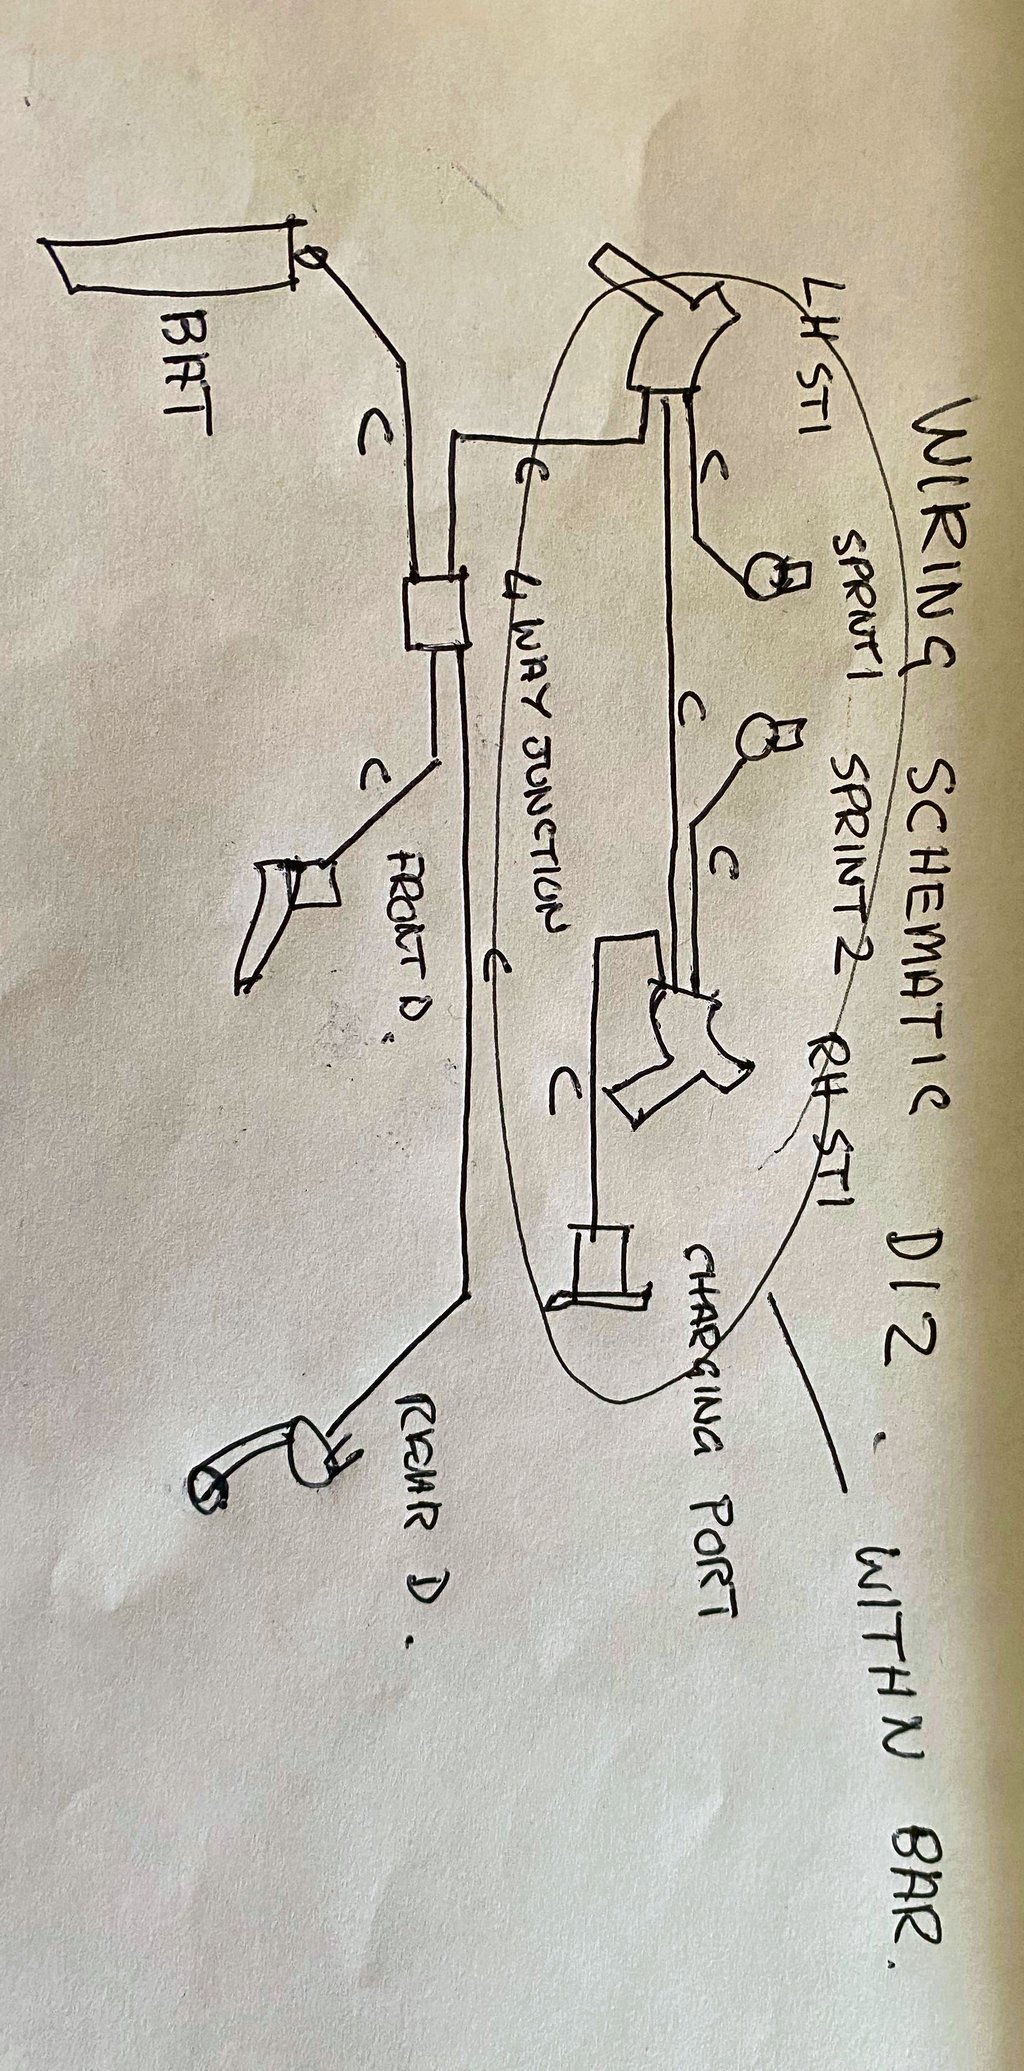 WIRING SCHEMATIC DI2. WITHN BAR.
LH STI
SPRNT1
SPRINT 2
RH STI
CHARGING PORT
C
C
C
C
C
4 WAY JUNCTION
C
C
C
BAT
FRONT D.
REAR D.